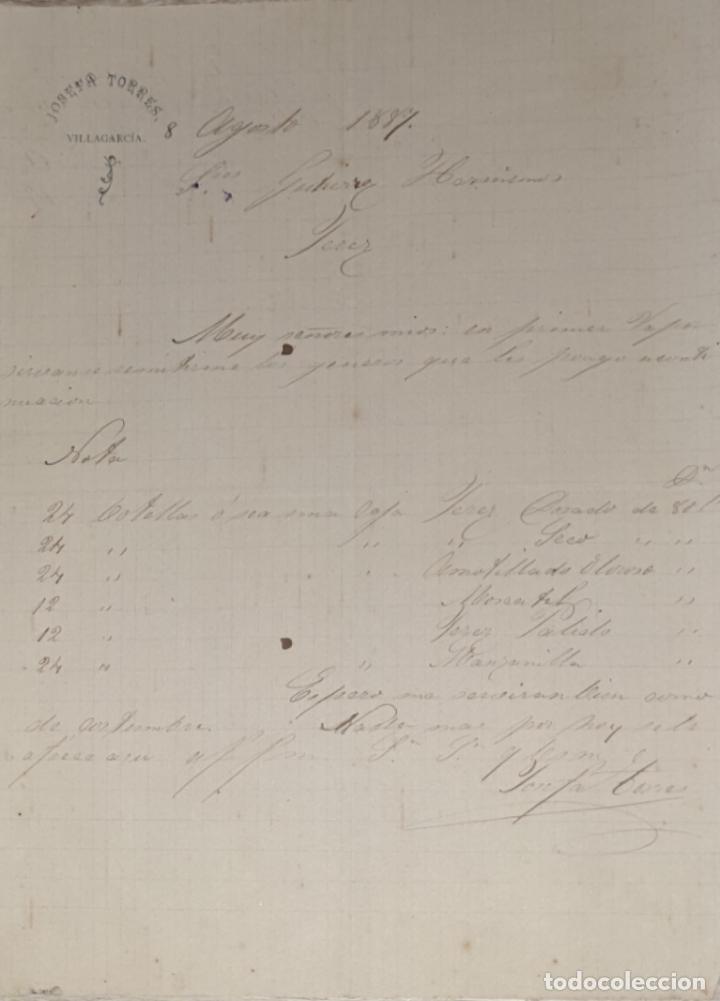 JOSEFA TORRES,
VILLAGARCÍA.
8 Agosto 1887.
Sres Gutierrez Hermanos
Jerez
Muy señores mios: en primer Vapor
sirvanse remitirme los generos que les pongo aconti
nuacion
Nota
24 botellas ó sea una Caja Jerez Dorado de 80
24 " " " Seco " "
24 " " Amotillado Oloroso "
12 " Moscatel "
12 " Jerez Palido "
24 " " Manzanilla "
Espero me serviran bien como
de costumbre. Nada mas por hoy se le
ofrece a su
Josefa Torres
todocoleccion.net